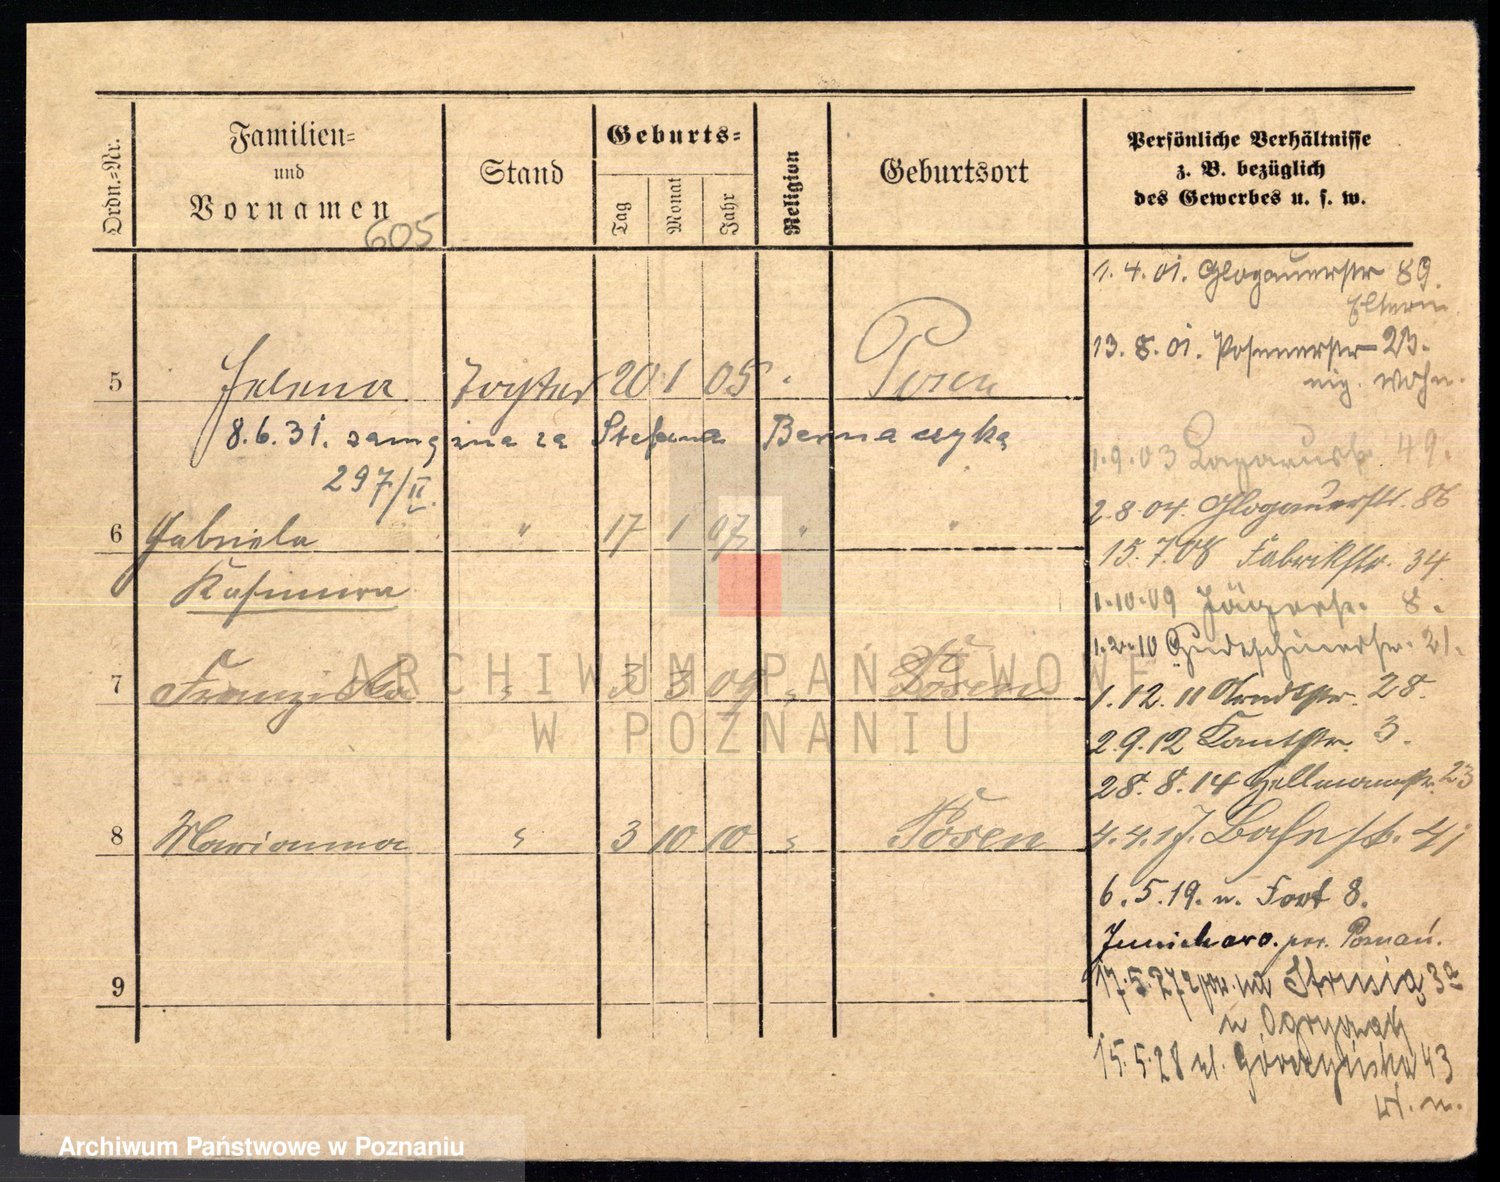 Ordn.-Nr.
Familien-
und
Vornamen
605
Stand
Geburts-
Tag
Monat
Jahr
Religion
Geburtsort
Persönliche Verhältnisse
z. B. bezüglich
des Gewerbes u. s. w.
5 Helena Tochter 20 1 05 Posen
8.6.31. zamężna za Stefana Bernaczyka
297/II
6 Gabriela " 17 1 07 " "
Kasimira
7 Franziska " 3 3 09 " Posen
8 Marianna " 3 10 10 " Posen
9
1.4.01. Glogauerstr 89.
Eltern
13.8.01. Posenerstr 23.
eig. Wohn.
1.9.03 Lazarusstr 49.
2.8.04. Glogauerstr. 86
15.7.08 Fabrikstr. 34
1.10.09 Jägerstr. 8.
1.2.10 21.
1.12.11 Arndtstr. 28.
2.9.12 Kantstr. 3.
28.8.14 Hellmannstr. 23
4.4.17. Bahnstr. 41
6.5.19. n. Fort 8.
Junikowo. pow. Poznań.
17.5.27 na Strusia 3a
u Ogrys
15.5.28 ul. Górczyńska 43
w. m.
ARCHIWUM PAŃSTWOWE
W POZNANIU
Archiwum Państwowe w Poznaniu